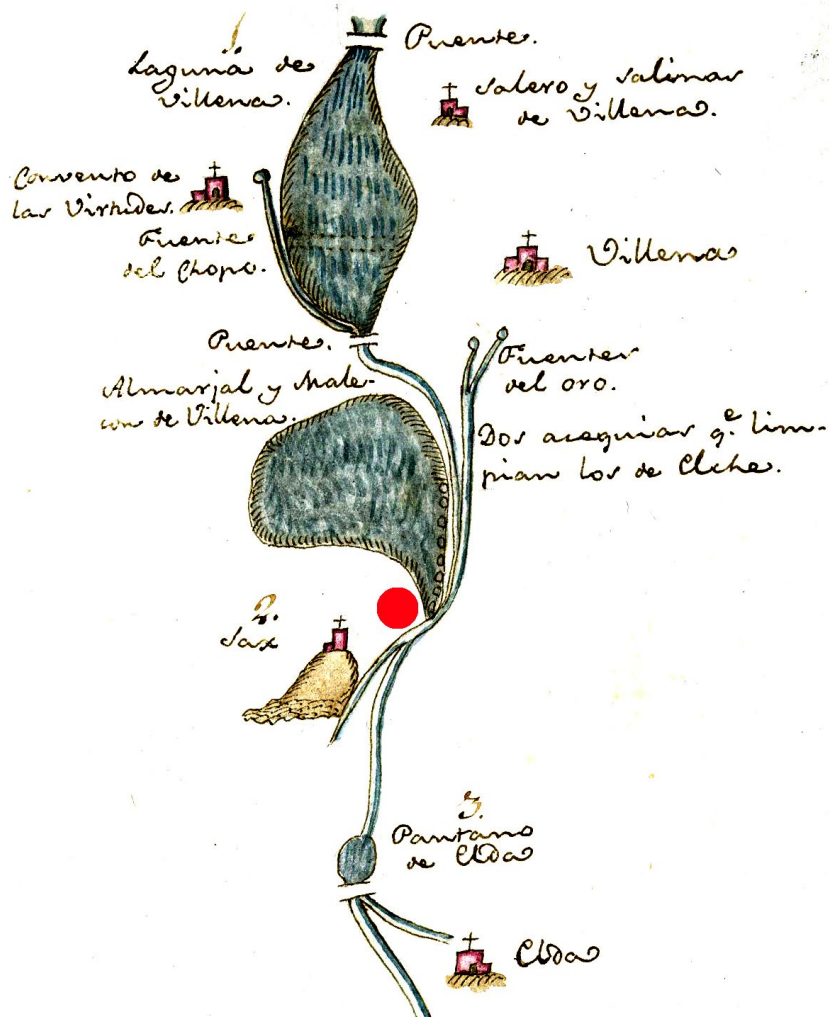 1.
Laguna de
Villena.
Puente.
Salero y Salinas
de Villena.
Convento de
las Virtudes.
Fuente
del Chopo.
Villena
Puente.
Fuentes
del oro.
Almarjal y Male-
con de Villena.
Dos acequias q.e lim-
pian los de Elche.
2.
Sax
3.
Pantano
de Elda
Elda